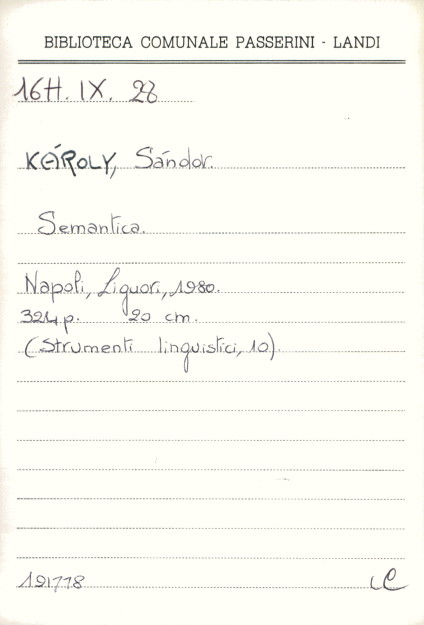 BIBLIOTECA COMUNALE PASSERINI - LANDI
16H. IX. 28
KÁROLY, Sándor.
Semantica.
Napoli, Liguori, 1980.
324 p. 20 cm.
(Strumenti linguistici, 10).
191778